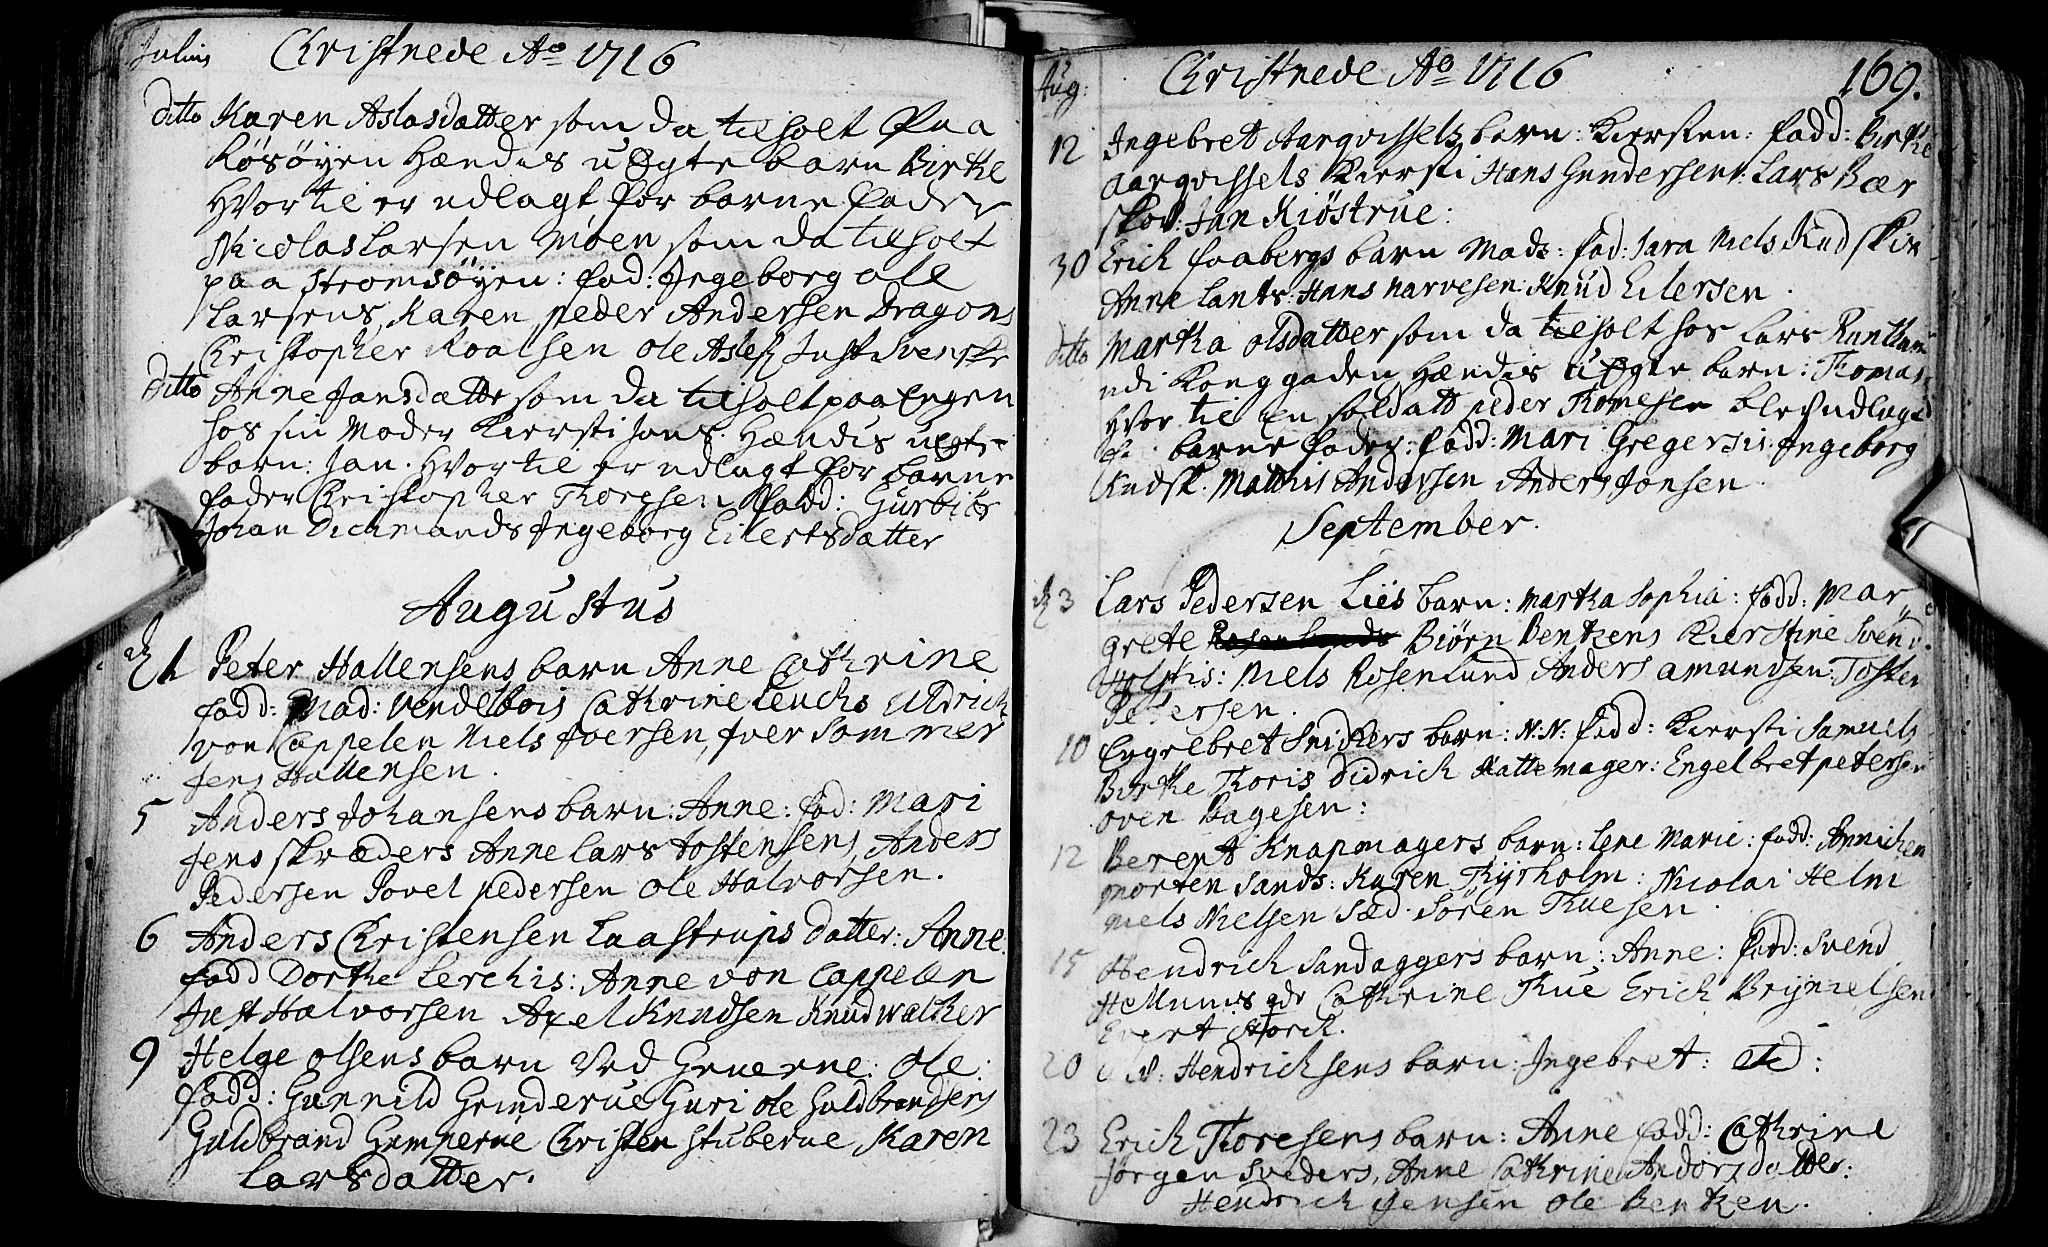 Julius Christnede Ao 1716
ditto Karen Aslasdatter som da tilholt paa
Kösöyen Hændis uÆgte barn Birthe
Hvortil er udlagt for barne fader
Nicolas Larsen Moen som da tilholt
paa Stromsöyen: fad: Ingeborg ole
Larsens, Karen peder Andersen Dragons
Christopher Roalsen ole Aslef Just Svenske
ditto Anne Jansdatter som da tilholt paa Engen
hos sin Moder Kiersti Jans. Hændis uegte
barn: Jan. Hvortil er udlagt for barne
fader Christopher Thoresen fadd: Gurbiör
Johan Dichmands Ingeborg Eilertsdatter
Augustus
1 Peter Hallensens barn Anne Cathrine
fadd: Mad: Vendelbois Cathrine Leuchs Uldrich
von Cappelen Niels Iversen, Iver Sommer
Jens Hallensen.
5 Anders Johansens barn: Anne: fad: Mari
Jens skræders Anne Lars Tostensens, Anders
Pedersen Povel pedersen ole Halvorsen.
6 Anders Christensen Laastrups datter: Anne
fadd Dorthe Lerchis: Anne von Cappelen
Just Halvorsen Axel Knudsen Knud walcker
9 Helge olsens barn Ved Gruerne: ole:
fadd: Gunnild Grinderue Guri ole Guldbrandsens
Guldbrand Gumperue Christen Stuberue Karen
Larsdatter.
Aug: Christnede Ao 1716 169.
12 Ingebret Aarqvissels barn: Kiersten: fadd: Birthe
aarqvissels Kiersti Hans Gundersens: Lars Bær
skov: Jan Kiöstrue:
30 Erich faabergs barn Mads: fad: Sara Niels Rudskin
Anne Lants: Hans Narvesen: Knud Eilersen.
ditto Martha olsdatter som da tilholt hos Lars
udi Konggaden Hændis uÆgte barn: Thomas
Hvor til en soldatt peder Thomesen blef udlagt
barne fader: fadd: Mari Gregersis: Ingeborg
Rudsk: Matthis Andersen Anders Jonsen
September.
3 Lars Pedersen Liis barn: Martha Sophia: fadd: Mar
grete Biörn Bentzens Kierstine Svend
Holstis: Niels Rosenlund Anders amundsen: Tosten
Petersen.
10 Engelbret Snickers barn: N:N: fadd: Kiersti Samuels
Birthe Thoris Didrich Hattemager: Engelbret petersen
oven Bagesen:
12 Berent Knapmagers barn: Lene Marie: fadd: Annichen
morten Sands: Karen Thyrholm: Nicolai Helm
niels Nielsen Sæd. Sören Thuesen.
15 Hendrich Sandaggers barn: Anne: fadd: Svend
Hellumis Cathrine Thue Erich Brynielsen
Evert Storch.
20 Hendrichsens barn: Ingebret:
23 Erich Thoresens barn: Anne fadd: Cathrine
Jörgen Sveders, Anne Cathrine Andersdatter:
Hendrich Jensen ole Bentzen.